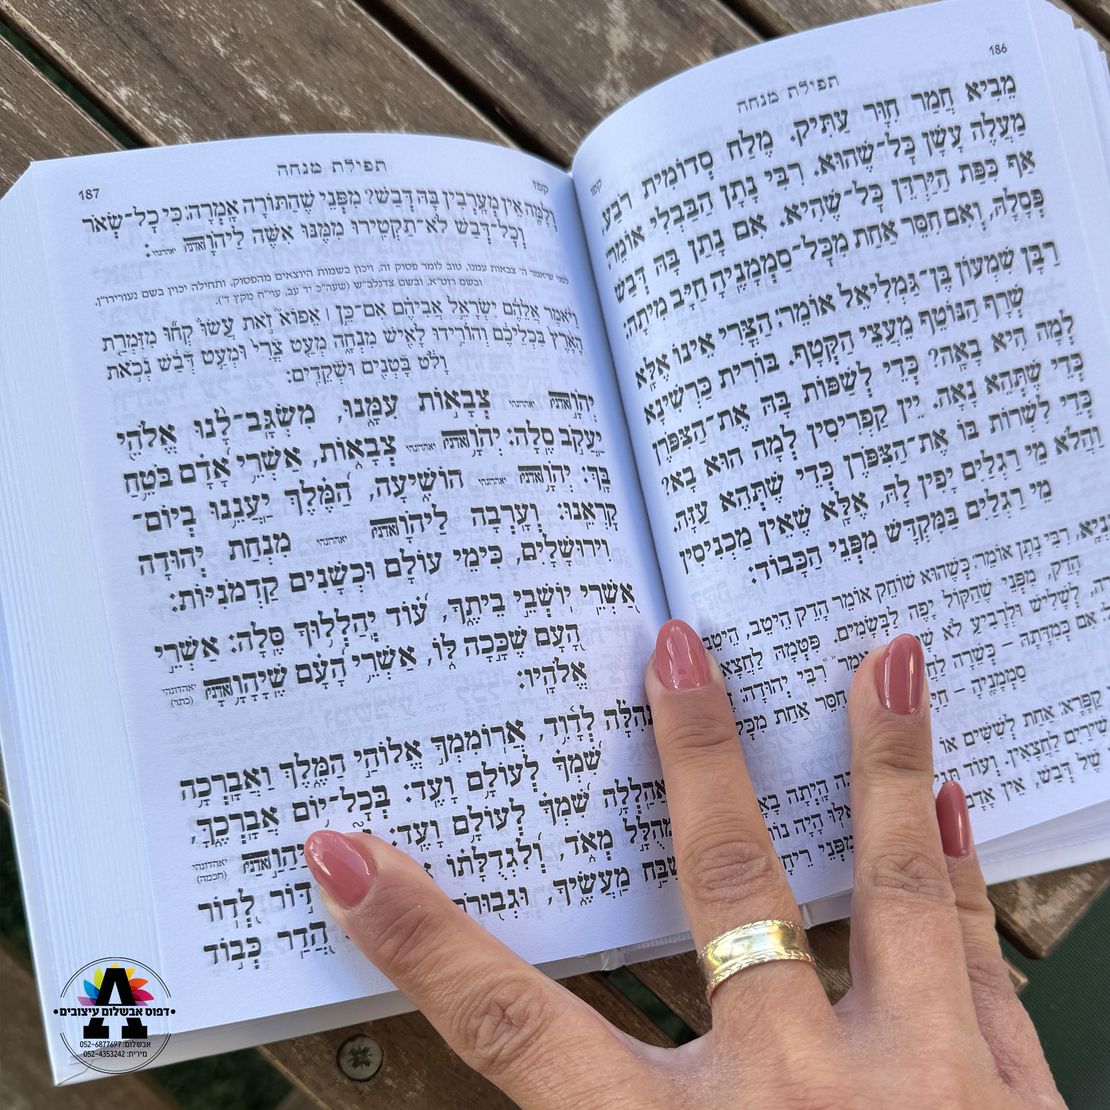 186
תפילת מנחה
מֵבִיא חֲמַר חִוָּר עַתִּיק. מֶלַח סְדוֹמִית רֹבַע.
מַעֲלֶה עָשָׁן כָּל־שֶׁהוּא. רִבִּי נָתָן הַבַּבְלִי אוֹמֵר:
אַף כִּפַּת הַיַּרְדֵּן כָּל־שֶׁהִיא. אִם נָתַן בָּהּ דְּבַשׁ
פְּסָלָהּ, וְאִם חִסֵּר אַחַת מִכָּל־סַמְמָנֶיהָ חַיָּיב מִיתָה:
רַבָּן שִׁמְעוֹן בֶּן־גַּמְלִיאֵל אוֹמֵר: הַצֳּרִי אֵינוֹ אֶלָּא
שְׂרָף הַנּוֹטֵף מֵעֲצֵי הַקְּטָף. בּוֹרִית כַּרְשִׁינָא
לְמָה הִיא בָאָה? כְּדֵי לְשַׁפּוֹת בָּהּ אֶת־הַצִּפֹּרֶן
כְּדֵי שֶׁתְּהֵא נָאָה. יֵין קַפְרִיסִין לְמָה הוּא בָא?
כְּדֵי לִשְׁרוֹת בּוֹ אֶת־הַצִּפֹּרֶן כְּדֵי שֶׁתְּהֵא עַזָּה.
וַהֲלֹא מֵי רַגְלַיִם יָפִין לָהּ, אֶלָּא שֶׁאֵין מַכְנִיסִין
מֵי רַגְלַיִם בַּמִּקְדָּשׁ מִפְּנֵי הַכָּבוֹד:
רִבִּי נָתָן אוֹמֵר: כְּשֶׁהוּא שׁוֹחֵק אוֹמֵר הָדֵק הֵיטֵב, הֵיטֵב
הָדֵק, מִפְּנֵי שֶׁהַקּוֹל יָפֶה לַבְּשָׂמִים. פִּטְּמָהּ לַחֲצָאִין
לְשָׁלִישׁ וּלְרָבִיעַ לֹא רִבִּי יְהוּדָה:
אִם כְּמִדָּתָהּ – כְּשֵׁרָה חִסֵּר אַחַת מִכָּל
סַמְמָנֶיהָ –
קַפָּרָא: אַחַת לְשִׁשִּׁים אוֹ
שִׁירַיִם לַחֲצָאִין. וְעוֹד תָּנֵי
שֶׁל דְּבַשׁ, אֵין אָדָם
187
תפילת מנחה
קפז
וְלָמָּה אֵין מְעָרְבִין בָּהּ דְּבַשׁ? מִפְּנֵי שֶׁהַתּוֹרָה אָמְרָה: כִּי כָל־שְׂאֹר
וְכָל־דְּבַשׁ לֹא־תַקְטִירוּ מִמֶּנּוּ אִשֶּׁה לַיהֹוָה אדני יאהדונהי:
לפני שיאמר ה' צבאות עמנו, טוב לומר פסוק זה, ויכוון בשמות היוצאים מהפסוק, ותחילה יכוון בשם נעורירו"ן,
וַיֹּאמֶר אֲלֵהֶם יִשְׂרָאֵל אֲבִיהֶם אִם־כֵּן | אֵפוֹא זֹאת עֲשׂוּ קְחוּ מִזִּמְרַת
הָאָרֶץ בִּכְלֵיכֶם וְהוֹרִידוּ לָאִישׁ מִנְחָה מְעַט צֳרִי וּמְעַט דְּבַשׁ נְכֹאת
וָלֹט בָּטְנִים וּשְׁקֵדִים:
יְהֹוָה אדני יאהדונהי צְבָאוֹת עִמָּנוּ, מִשְׂגָּב־לָנוּ אֱלֹהֵי
יַעֲקֹב סֶלָה: יְהֹוָה אדני יאהדונהי צְבָאוֹת, אַשְׁרֵי אָדָם בֹּטֵחַ
בָּךְ: יְהֹוָה אדני יאהדונהי הוֹשִׁיעָה, הַמֶּלֶךְ יַעֲנֵנוּ בְיוֹם־
קָרְאֵנוּ: וְעָרְבָה לַיהֹוָה אדני יאהדונהי מִנְחַת יְהוּדָה
וִירוּשָׁלָיִם, כִּימֵי עוֹלָם וּכְשָׁנִים קַדְמֹנִיּוֹת:
אַשְׁרֵי יוֹשְׁבֵי בֵיתֶךָ, עוֹד יְהַלְלוּךָ סֶּלָה: אַשְׁרֵי
הָעָם שֶׁכָּכָה לּוֹ, אַשְׁרֵי הָעָם שֶׁיְהֹוָה אדני יאהדונהי (כתר)
אֱלֹהָיו:
תְּהִלָּה לְדָוִד, אֲרוֹמִמְךָ אֱלוֹהַי הַמֶּלֶךְ וַאֲבָרְכָה
שִׁמְךָ לְעוֹלָם וָעֶד: בְּכָל־יוֹם אֲבָרְכֶךָּ,
וַאֲהַלְלָה שִׁמְךָ לְעוֹלָם וָעֶד: יְהֹוָה אדני יאהדונהי (חכמה)
וּמְהֻלָּל מְאֹד, וְלִגְדֻלָּתוֹ דּוֹר לְדוֹר
יְשַׁבַּח מַעֲשֶׂיךָ, הֲדַר כְּבוֹד
דפוס אבשלום עיצובים
אבשלום: 052-6877697
מירית: 052-4353242